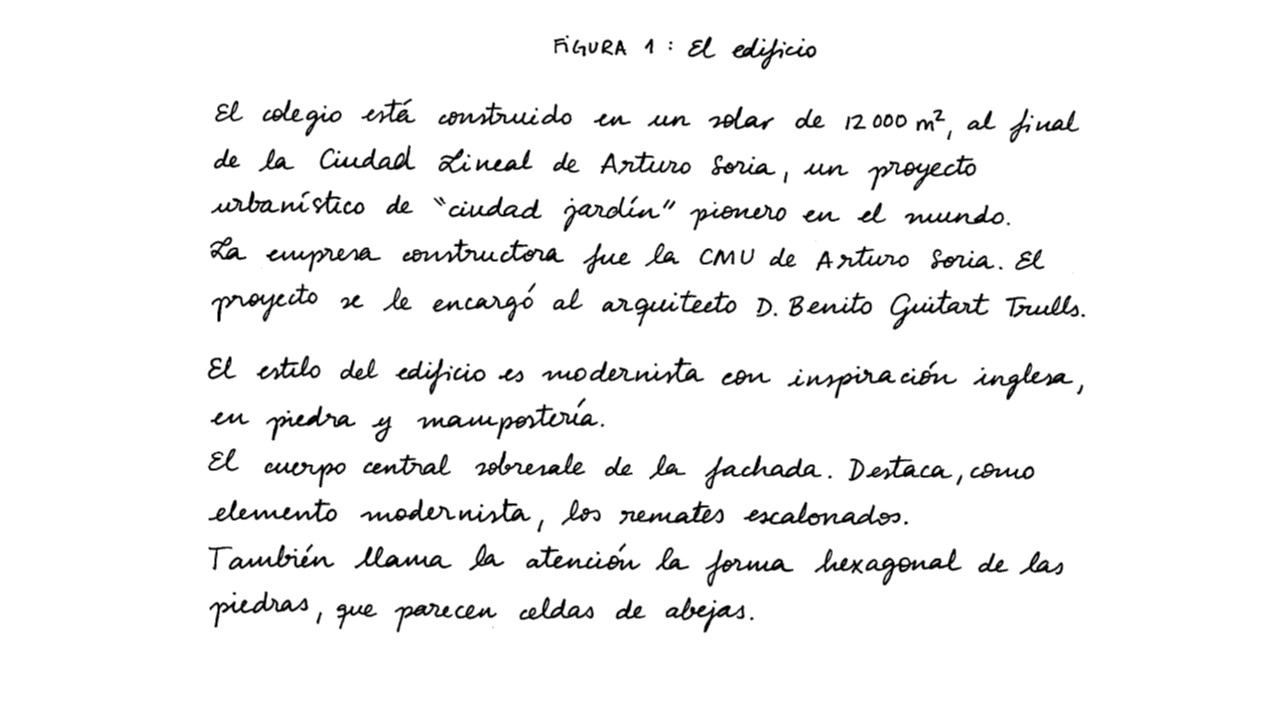 FIGURA 1: El edificio
El colegio está construido en un solar de 12000 m², al final
de la Ciudad Lineal de Arturo Soria, un proyecto
urbanístico de "ciudad jardín" pionero en el mundo.
La empresa constructora fue la CMU de Arturo Soria. El
proyecto se le encargó al arquitecto D. Benito Guitart Trulls.
El estilo del edificio es modernista con inspiración inglesa,
en piedra y mampostería.
El cuerpo central sobresale de la fachada. Destaca, como
elemento modernista, los remates escalonados.
También llama la atención la forma hexagonal de las
piedras, que parecen celdas de abejas.